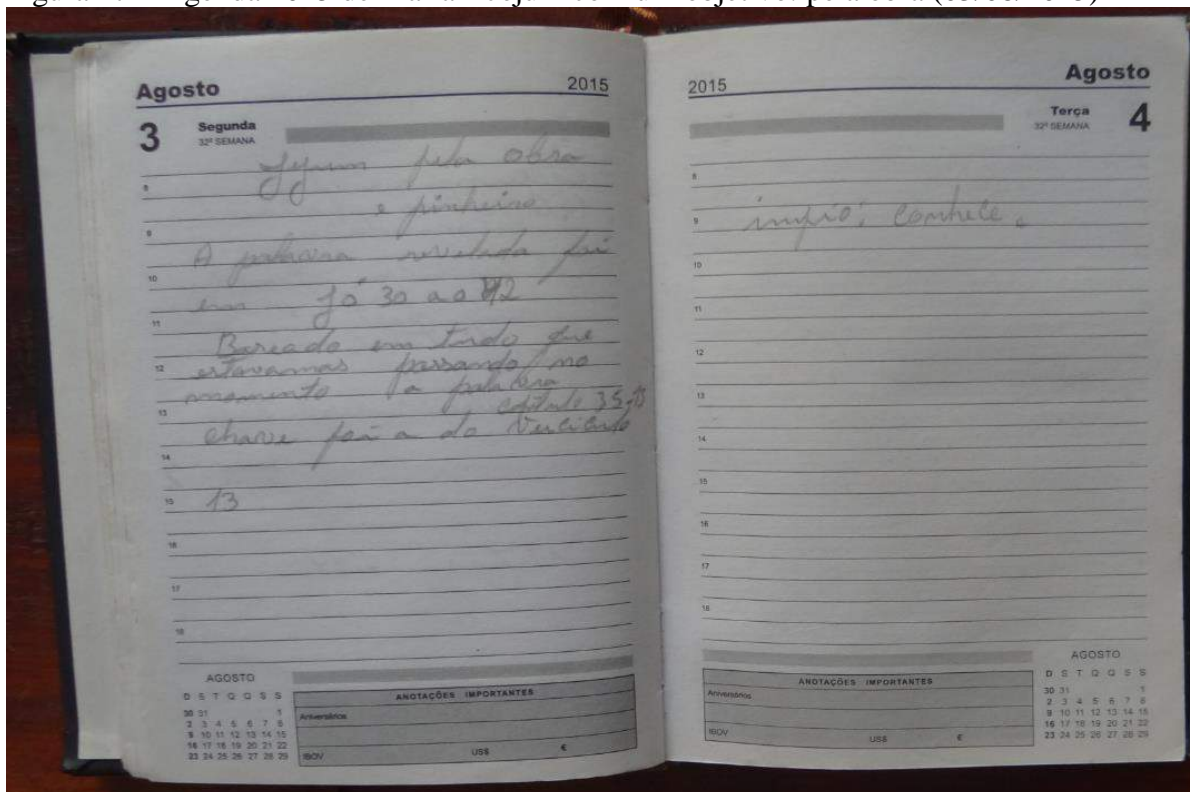 Agosto 2015
3 Segunda
32ª SEMANA
Jejum pela obra
8
e pinheiro
9
A palavra revelada foi
10
em Jó 30 ao 42
11
Baseado em tudo que
12 estavamos passando no
momento a palavra
13 capitulo 35-13
chave foi a do Versiculo
14
15 13
16
17
18
AGOSTO
D S T Q Q S S
30 31 1
2 3 4 5 6 7 8
9 10 11 12 13 14 15
16 17 18 19 20 21 22
23 24 25 26 27 28 29
ANOTAÇÕES IMPORTANTES
Aniversários
IBOV US$ €
2015 Agosto
Terça 4
32ª SEMANA
8
9 impio; conhece.
10
11
12
13
14
15
16
17
18
ANOTAÇÕES IMPORTANTES
Aniversários
IBOV US$ €
AGOSTO
D S T Q Q S S
30 31 1
2 3 4 5 6 7 8
9 10 11 12 13 14 15
16 17 18 19 20 21 22
23 24 25 26 27 28 29